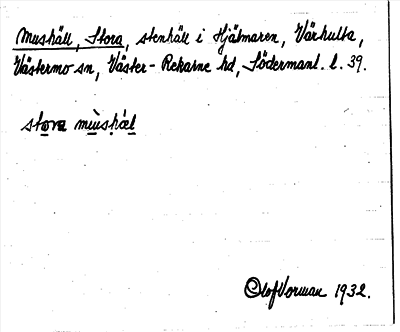 Mushäll, Stora, stenhäll i Hjälmaren, Värhulta,
Västermo sn, Väster-Rekarne hd, Södermanl. l. 39.
stora mùushæl
Olof Vorman 1932.